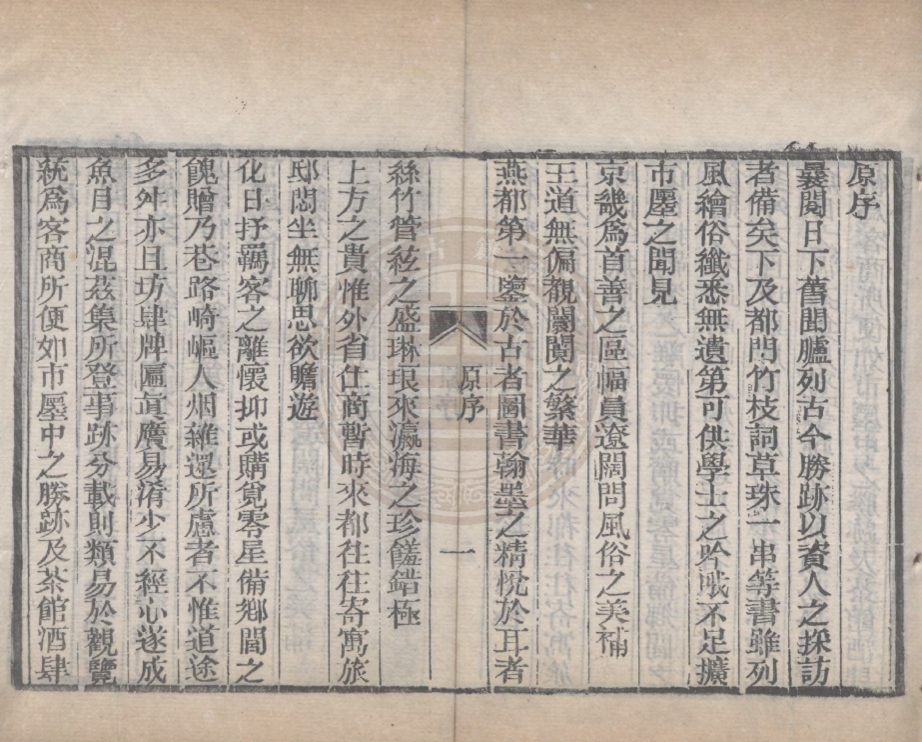 原序
曩閱日下舊聞臚列古今勝跡以資人之採訪
者備矣下及都門竹枝詞草珠一串等書雖列
風繪俗纖悉無遺第可供學士之吟哦不足擴
市廛之聞見
京畿爲首善之區幅員遼闊問風俗之美補
王道無偏觀闤闠之繁華
燕都第一鑒於古者圖書翰墨之精悅於耳者
原序 一
絲竹管絃之盛琳琅來瀛海之珍饈錯極
上方之貴惟外省仕商暫時來都往往寄寓旅
邸悶坐無聊思欲瞻遊
化日抒羈客之離懷抑或購覓零星備鄉閭之
餽贈乃巷路崎嶇人烟雜遝所慮者不惟道途
多舛亦且坊肆牌匾眞贋易淆少不經心遂成
魚目之混茲集所登事跡分載則類易於觀覽
統爲客商所便如市廛中之勝跡及茶館酒肆